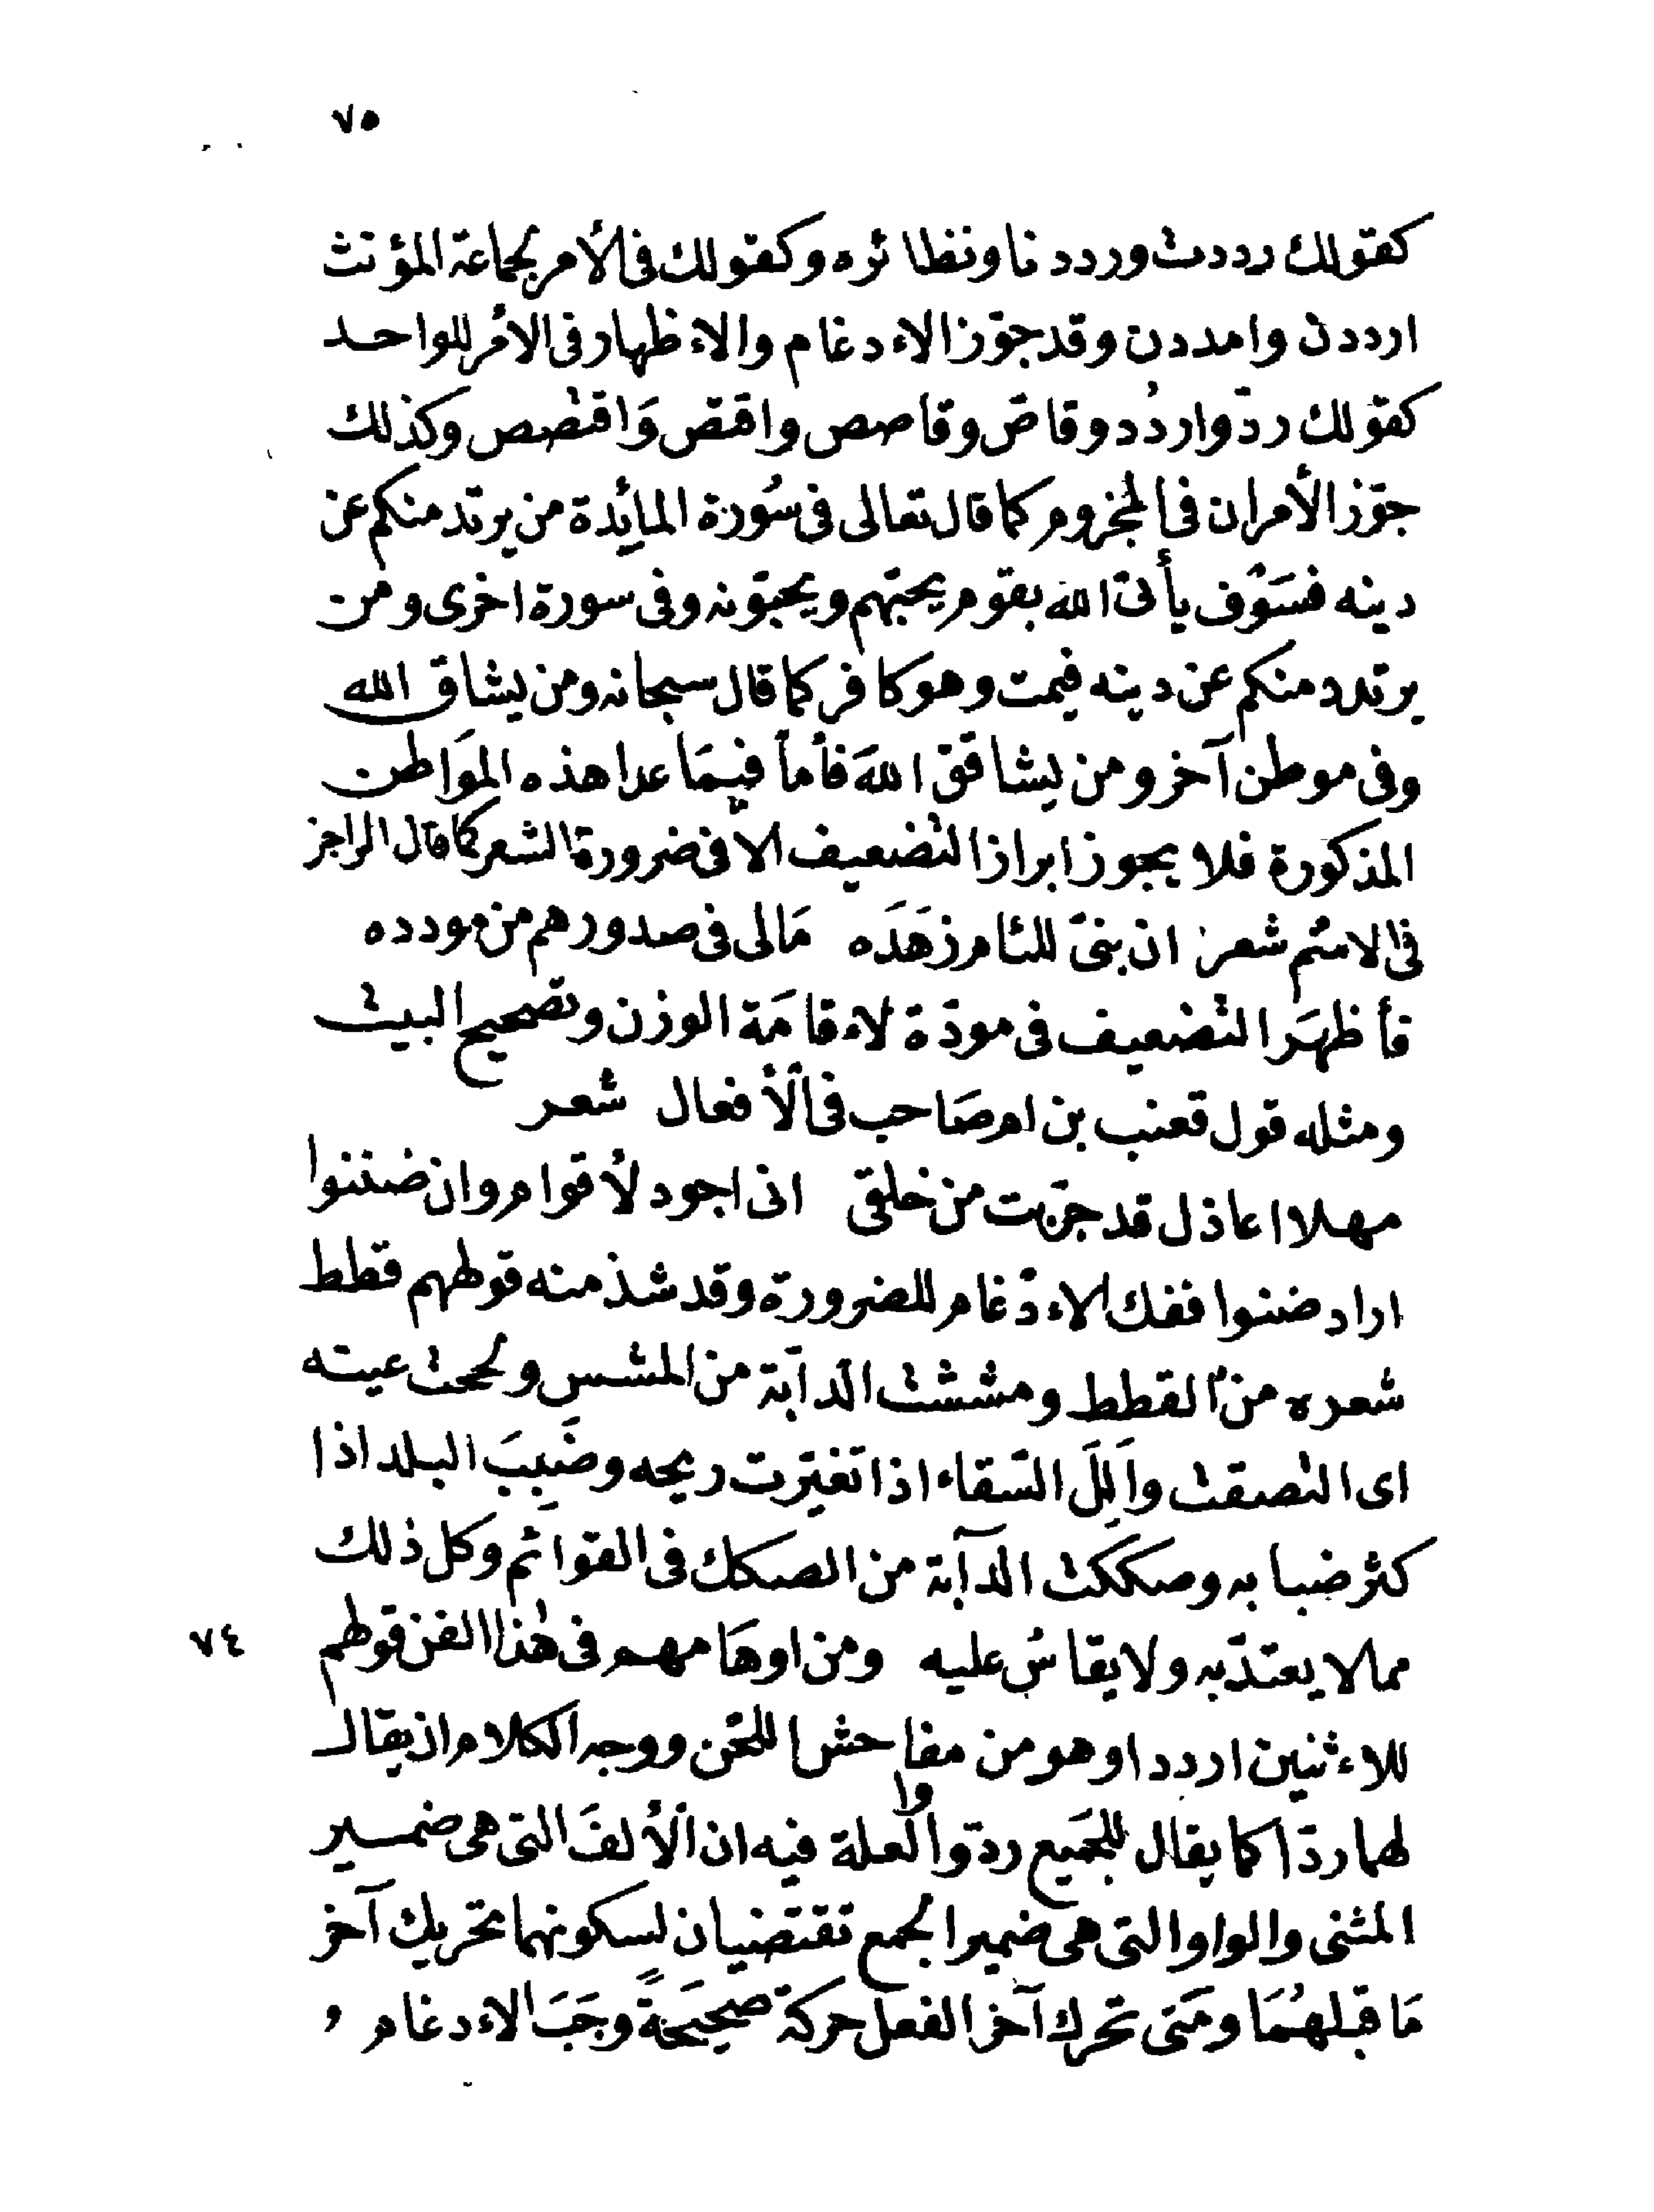 ٧٥
كقولك رددت ورددنا ونظائره وكقولك فى الأمر لجماعة المؤنث
ارددن وامددن وقد جوّز الاءدغام والاءظهار فى الأمر للواحد
كقولك ردّ واردُد وقاصّ وقاصص واقتصّ وَاقتصص وكذلك
جوّز الأمران فى المجزوم كما قال تعالى فى سُورة المائدة من يرتد منكم عن
دينه فسَوْف يأتى الله بقوم يحبّهم ويحبّونه وفى سورة اخرى ومن
يرتدد منكم عن دينه فيمت وهو كافر كما قال سبحانه ومن يشاق الله
وفى موطن آخر ومن يشاقق اللهَ فأما فيمَا عدا هذه الموَاطن
المذكورة فلا يجوز ابراز التضعيف الا فى ضرورة الشعر كما قال الراجز
فى الاسم شعر ان بنىّ للئام زهَدَه مَالى فى صدورهم من مودده
فأظهَر التضعيف فى مودّة لاءقامَة الوزن وتصحيح البيت
ومثله قول قعنب بن ام صَاحب فى الأفعال شعر
مهلا اعاذل قد جرّبت من خلقى انى اجود لأقوام وان ضننوا
اراد ضننوا ففك الاءدْغام للضرورة وقد شذ منه قولهم قطط
شعره من القطط ومششت الدآبّة من المشش ولححت عينه
اى التصقت وأَلِلَ السّقاء اذا تغيّرت ريحه وضَبِبَ البلد اذا
كثر ضبابه وصككت الدآبة من الصكك فى القوائم وكل ذلك
مما لا يعتدّ به ولا يقاسُ عليه ومن اوهَامهم فى هٰذا الفن قولهم ٧٤
للاءثنين ارددا وهو من مفاحش اللحْن ووجه الكلام ان يقال
لهما ردّا كما يقال للجَميع ردّوا والعلة فيه ان الألفَ التى هى ضمير
المثنى والواو التى هى ضمير الجمع تقتضيان لسكونهما تحريك آخر
مَا قبلهُمَا ومَتى تحرك آخر الفعل حركة صحيحَةً وجَبَ الاءدغام و